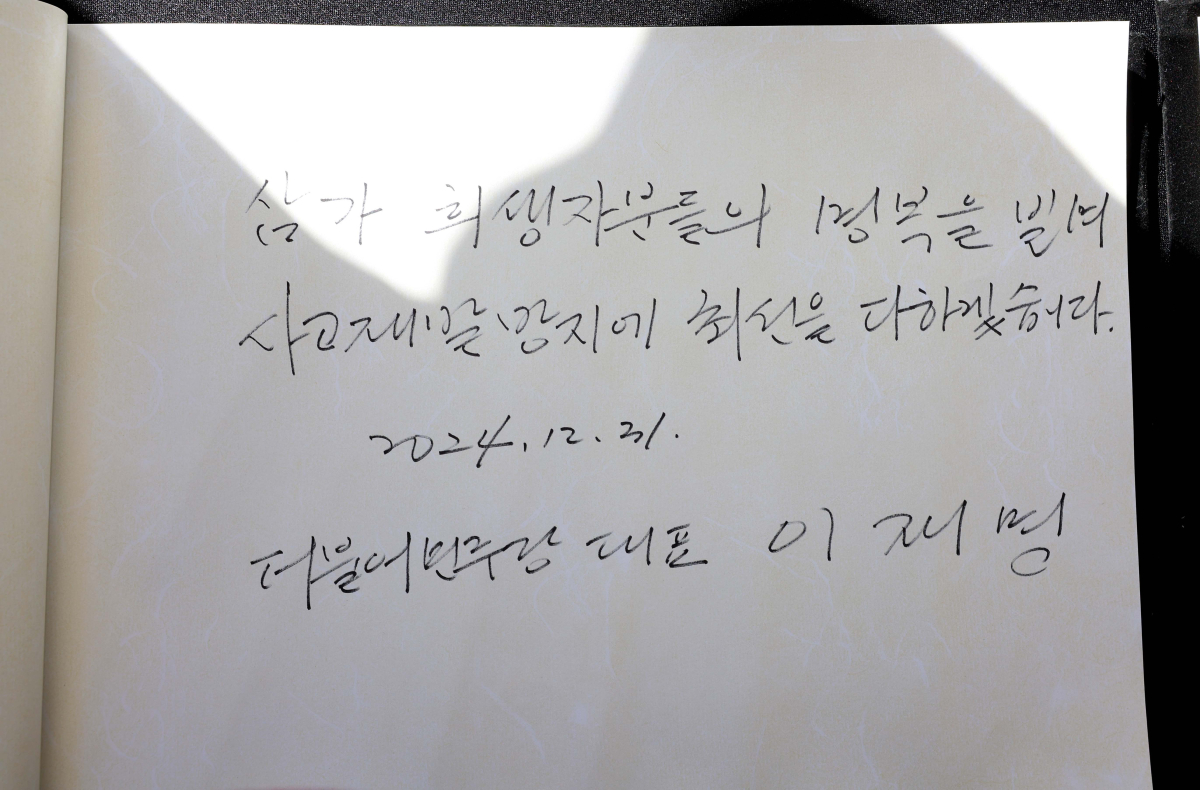 삼가 희생자분들의 명복을 빌며
사고재발방지에 최선을 다하겠습니다.
2024. 12. 31.
더불어민주당 대표 이재명